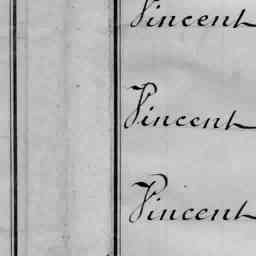 Vincent
Vincent
Vincent